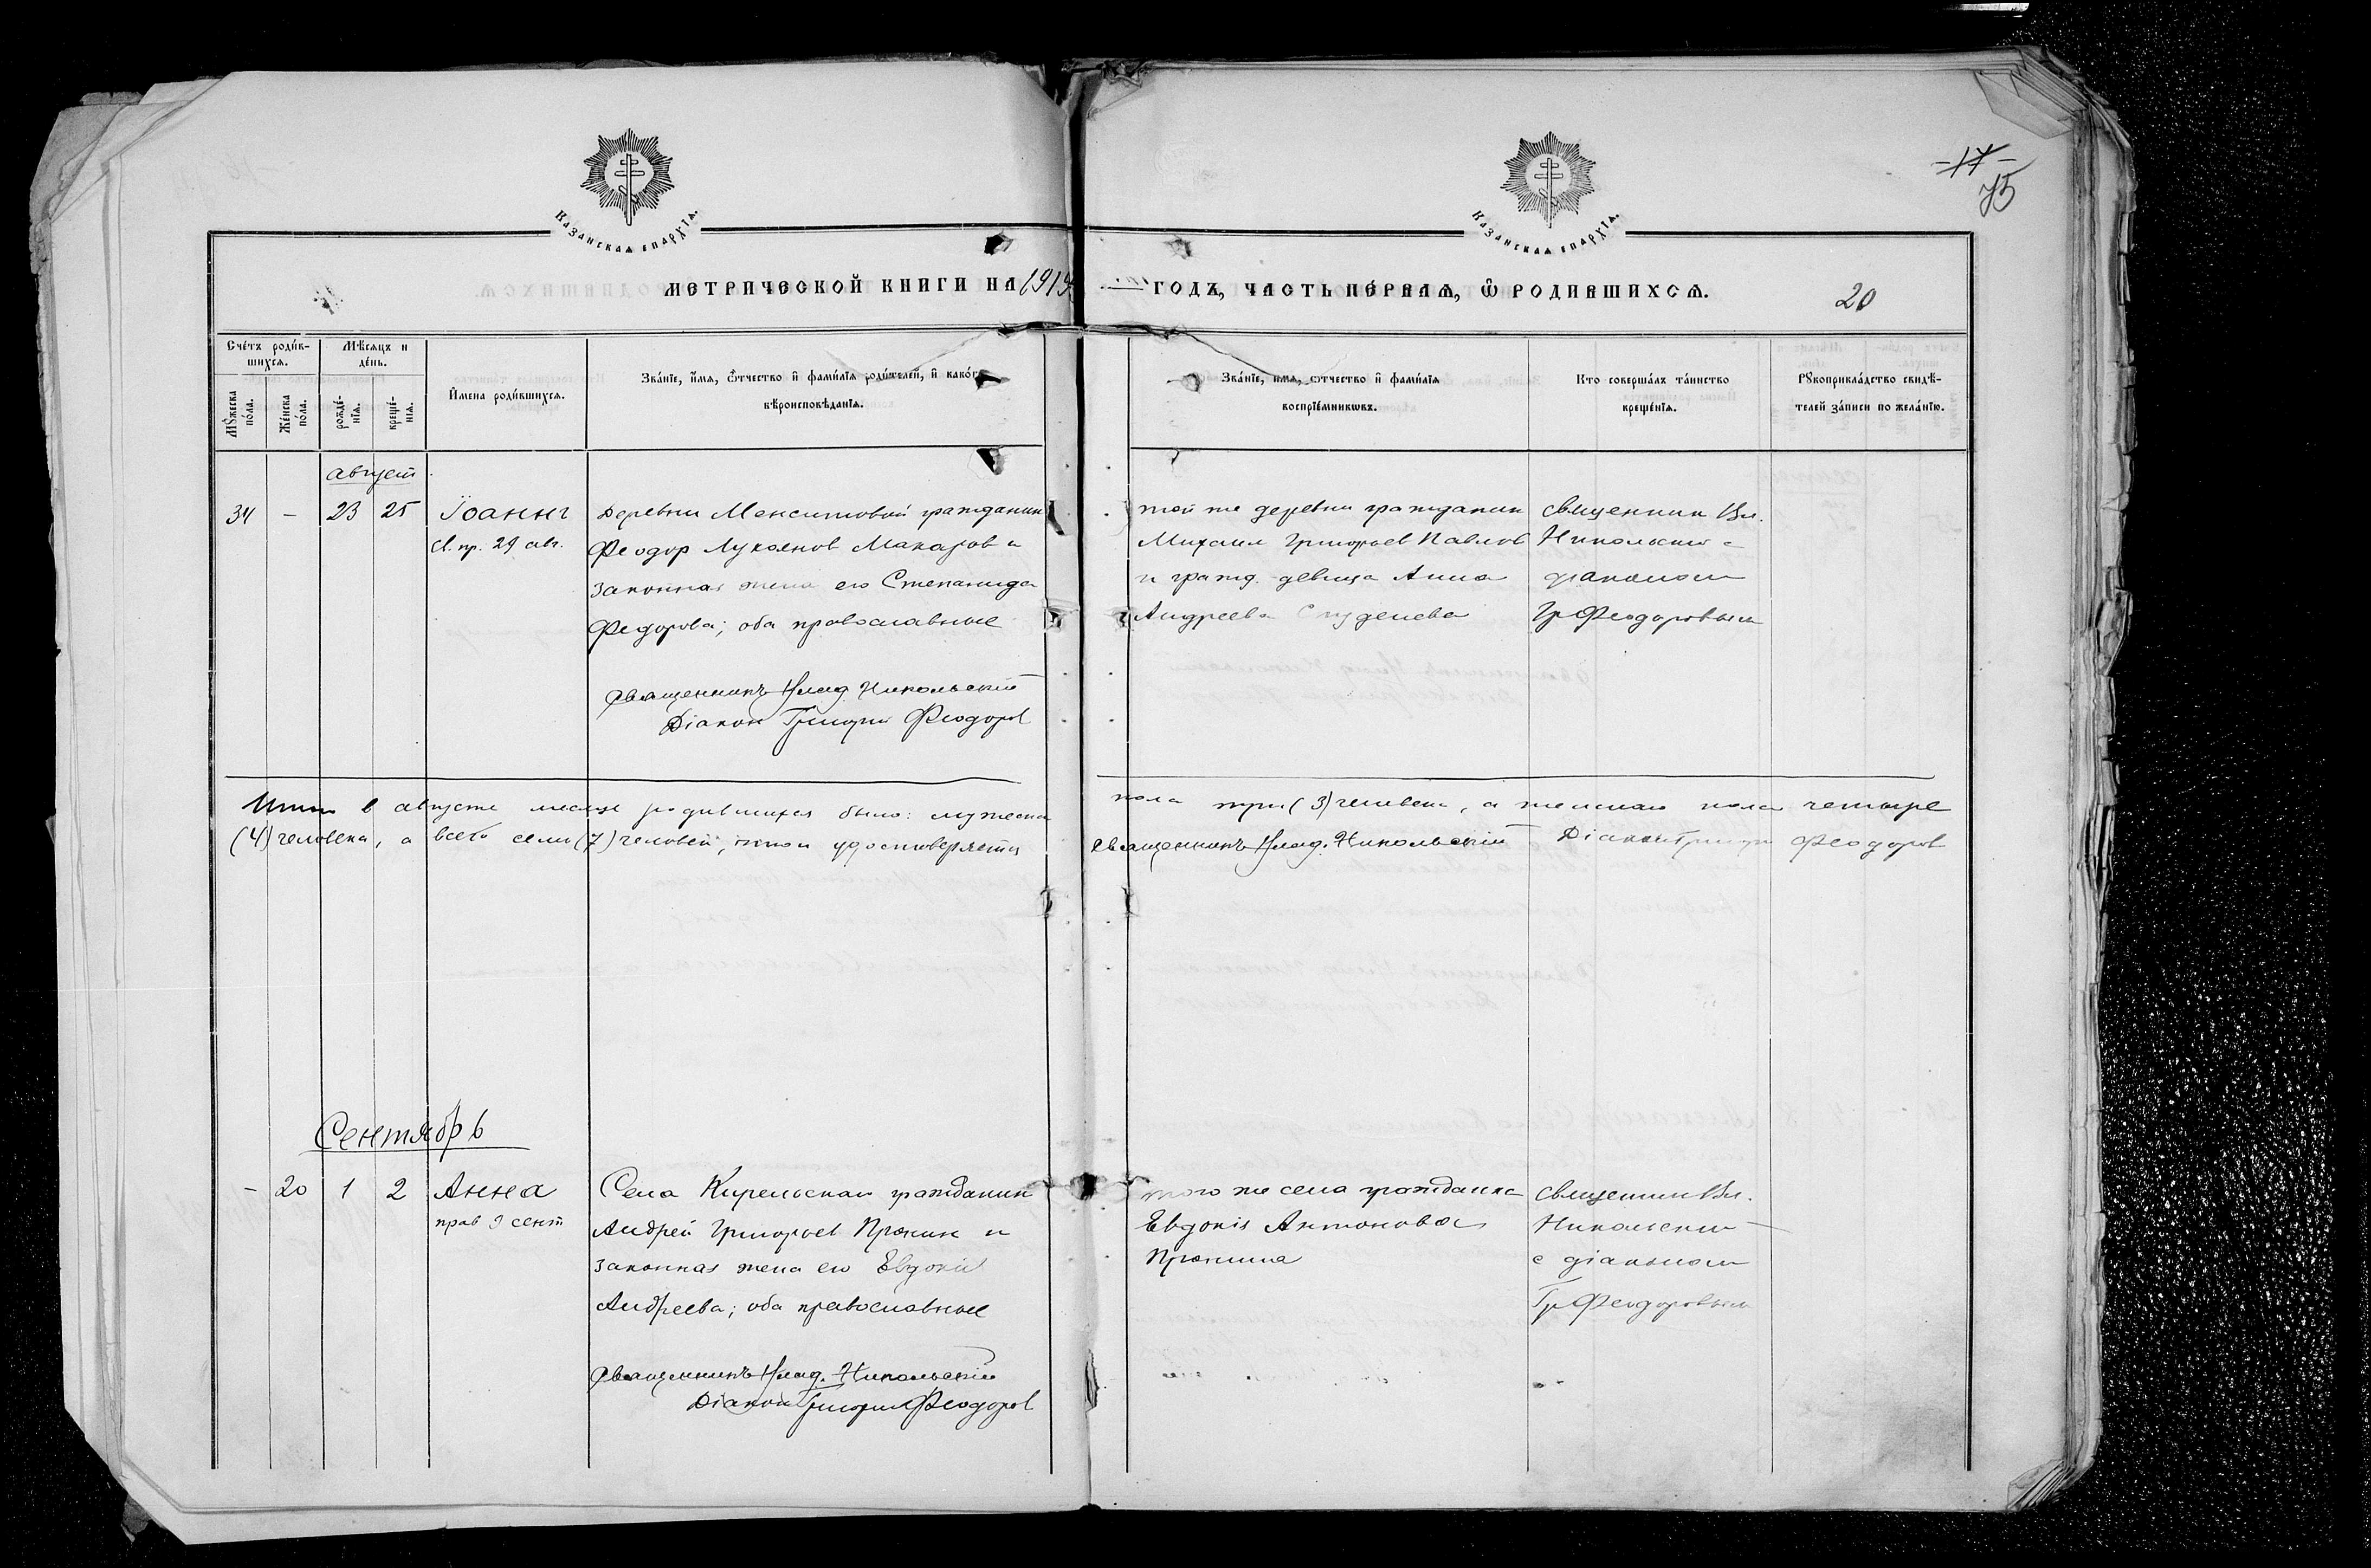 -17-
75
Казанская епархїя.
Казанская епархїя.
МЕТРИЧЕСКОЙ КНИГИ НА 1919
ГОДЪ, ЧАСТЬ ПЕ́РВАЯ, Ѽ РОДИВШИХСЯ.
20
Сче́тъ роди́в-
шихся.
Мѣ́сяцъ и
де́нь.
Мꙋ́жеска
по́ла.
Же́нска
по́ла.
рожде́-
нїя.
креще́-
нїя.
И҆мена роди́вшихся.
Зва́нїе, и҆́мя, ѻ҆́тчество и҆ фами́лїя роди́телей, и҆ како́го
вѣроисповѣ́данїя.
Зва́нїе, и҆мя, ѻ҆тчество и҆ фами́лїя
воспрїе́мникѡвъ.
Кто соверша́лъ та́инство
креще́нїя.
Рꙋкоприкла́дство свидѣ́-
телей за́писи по жела́нїю.
август
34 - 23 25 Іоаннъ
св. пр. 29 авг.
Деревни гражданин
Феодор Лукоянов Макаров и
законная жена его Степанида
Федорова; оба православные
Священникъ Влад. Никольскій
Діакон Григорій Феодоров
той же деревни гражданин
Михаил Григорьев Павлов
и гражд. девица Анна
Андреева
священник Вл.
Никольский с
діаконом
Гр Феодоровым
Итого в августе месяце родившихся было: мужеска
пола три (3) человека, а женскаго пола четыре
(4) человека, а всего семь (7) человек,
Священникъ Влад. Никольскій Діакон Григорій Феодоров
Сентябрь
- 20 1 2 Анна
прав 9 сент
Села Кирельскаго гражданин
Андрей Григорьев Пронин и
законная жена его Евдокія
Андреева; оба православные
Священникъ Влад. Никольскій
Діакон Григорій Феодоров
того же села гражданка
Евдокія Антонова
Пронина
священник Вл.
Никольский
с діаконом
Гр Феодоровым